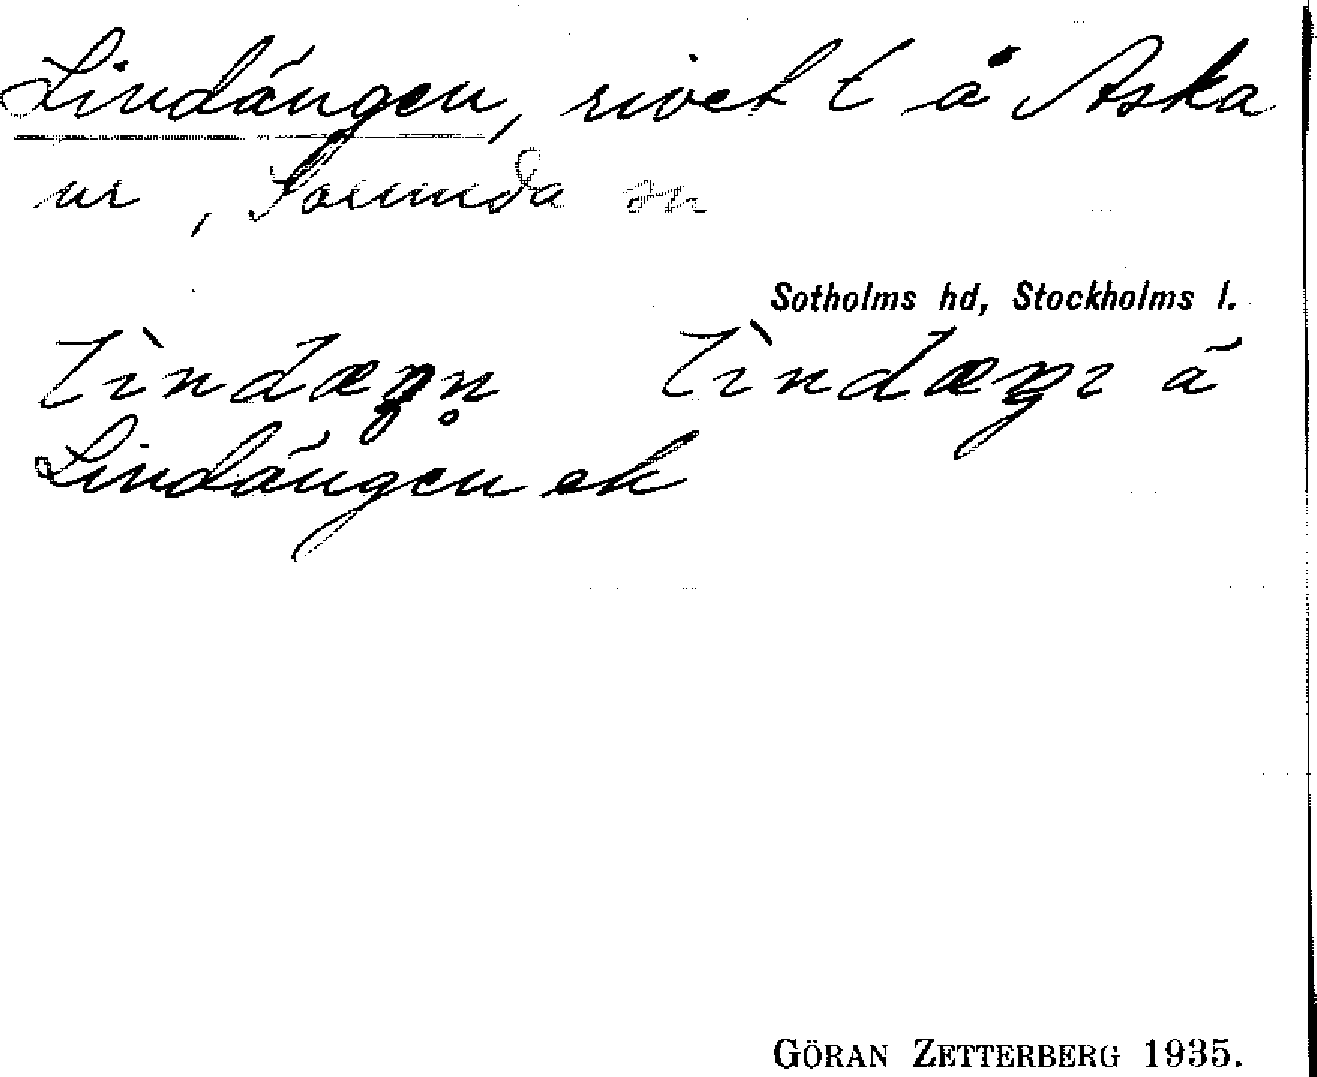 Lindängen, rivet t å Aska
ur, Sorunda sn
Sotholms hd, Stockholms l.
lìndæŋn̥ lìndæŋı å
Lindängen ek
GÖRAN ZETTERBERG 1935.